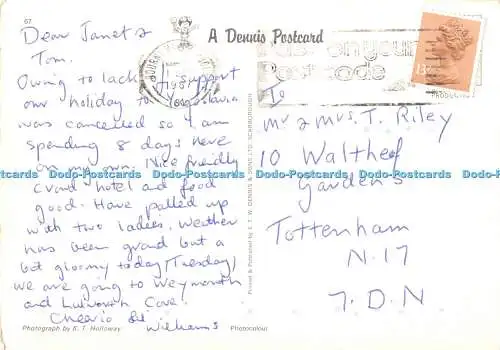 67
A Dennis Postcard
Dear Janet &
Tom.
Owing to lack of support
our holiday to
was cancelled so I am
spending 8 days here
on my own. Nice friendly
crowd hotel and food
good. Have palled up
with two ladies, weather
has been grand but a
bit gloomy today (Tuesday)
we are going to Weymouth
and Lulworth Cove.
Cheerio
Williams
Photograph by K. T. Holloway.
Photocolour
Printed & Published by E. T. W. DENNIS & SONS LTD. SCARBOROUGH
postcode
To
Mr & Mrs. T. Riley
10 Waltheof
Gardens
Tottenham
N.17
7.D.N
Dodo-Postcards Dodo-Postcards Dodo-Postcards Dodo-Postcards